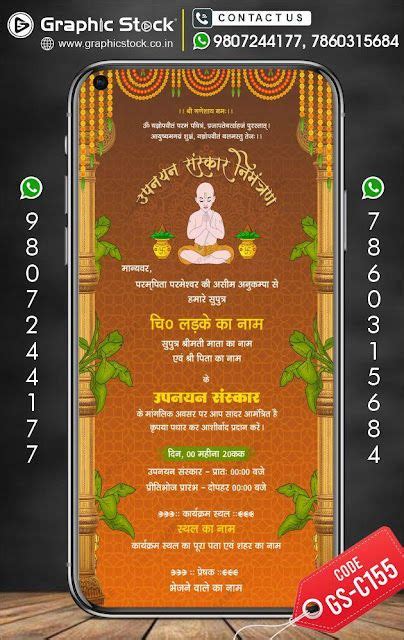 Graphic Stock®
www.graphicstock.co.in
CONTACT US
9807244177, 7860315684
।। श्री गणेशाय नमः ।।
ॐ यज्ञोपवीतं परमं पवित्रं, प्रजापतेर्यत्सहजं पुरस्तात् ।
आयुष्यमग्र्यं शुभ्रं, यज्ञोपवीतं बलमस्तु तेजः ।।
उपनयन संस्कार निमंत्रण
मान्यवर,
परमपिता परमेश्वर की असीम अनुकम्पा से
हमारे सुपुत्र
चि० लड़के का नाम
सुपुत्र श्रीमती माता का नाम
एवं श्री पिता का नाम
के
उपनयन संस्कार
के मांगलिक अवसर पर आप सादर आमंत्रित है
कृपया पधार कर आशीर्वाद प्रदान करें ।
दिन, 00 महीना 20कक
उपनयन संस्कार - प्रातः 00:00 बजे
प्रीतिभोज प्रारंभ - दोपहर 00:00 बजे
कार्यक्रम स्थल
स्थल का नाम
कार्यक्रम स्थल का पूरा पता एवं शहर का नाम
प्रेषक
भेजने वाले का नाम
9807244177
7860315684
CODE
GS-C155